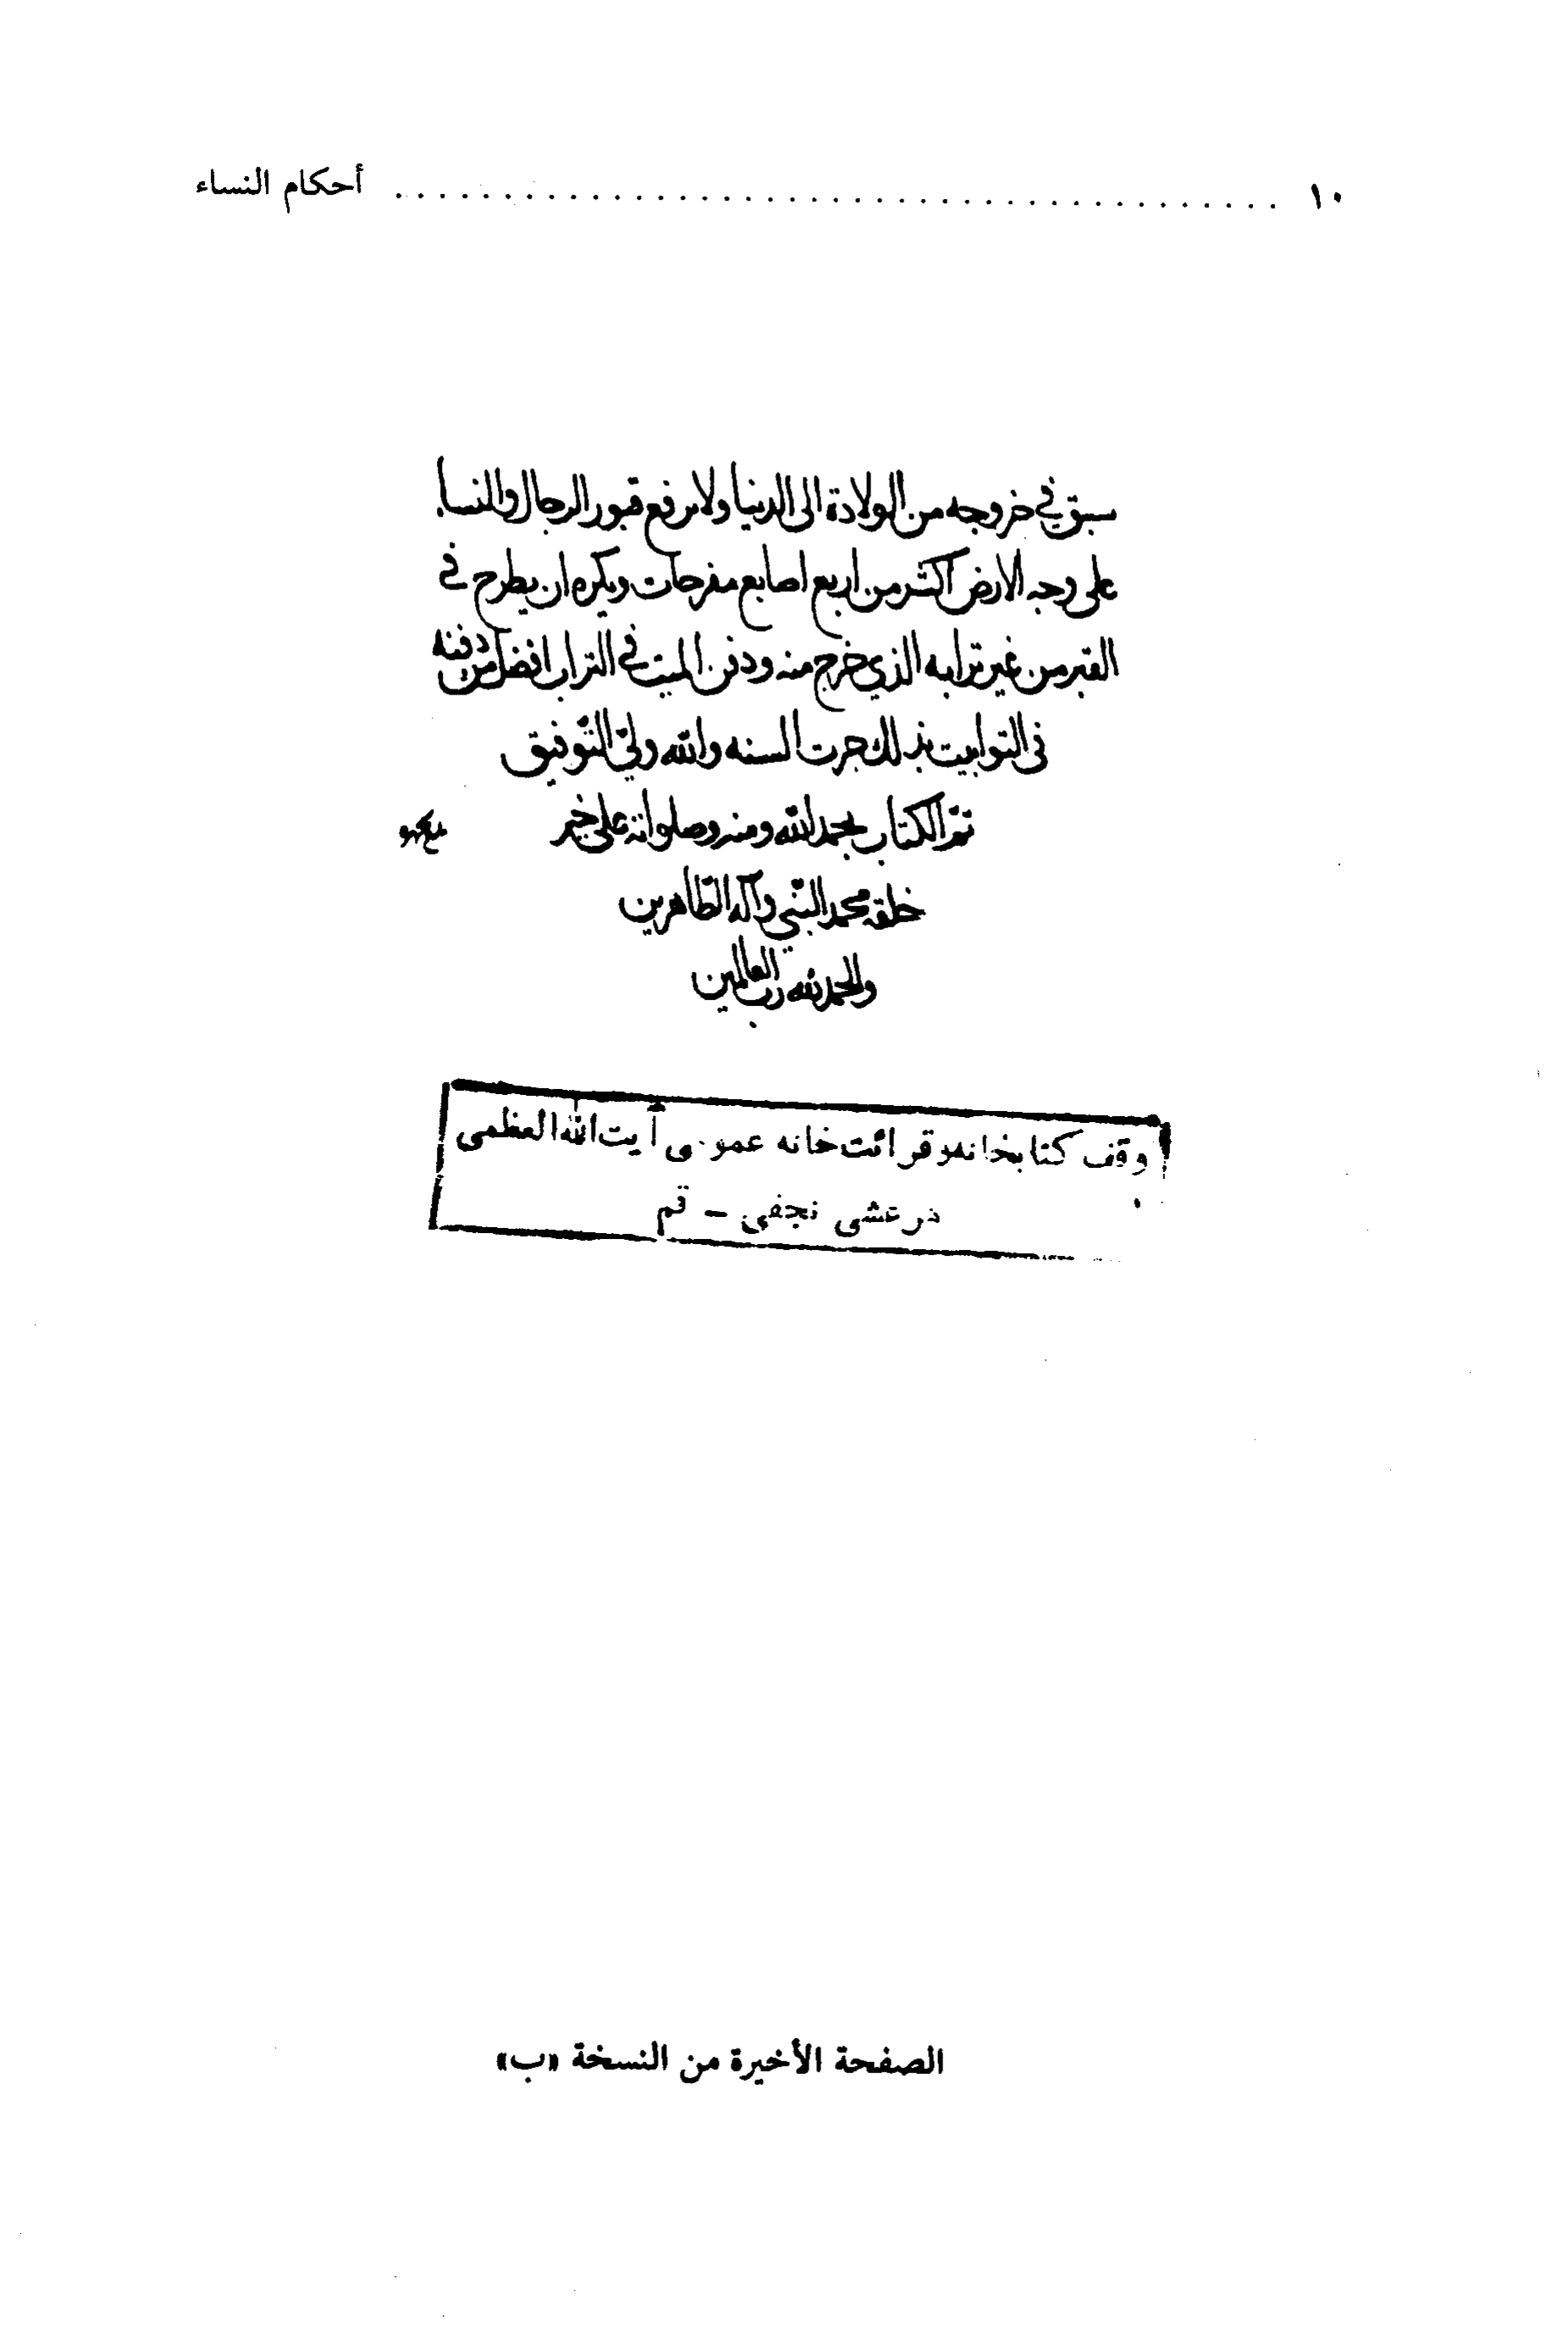 ١٠ ........................................ أحكام النساء
سبق في خروجه من الولادة الى الدنيا ولا يرفع قبور الرجال والنسا
على وجه الارض اكثر من اربع اصابع مفرجات ويكره ان يطرح في
القبر من غير ترابه الذي خرج منه ودفن الميت في التراب افضل من دفنه
في التوابيت بذلك جرت السنه والله ولي التّوفيق
تمّ الكتاب بحمد الله ومنه وصلواته على خير
خلقه محمد النبّي وآله الطّاهرين
والحمد لله رب العالمين
وقف كتابخانه و قرائت خانه عمومی آیت الله العظمی
مرعشی نجفی - قم
الصفحة الأخيرة من النسخة «ب»